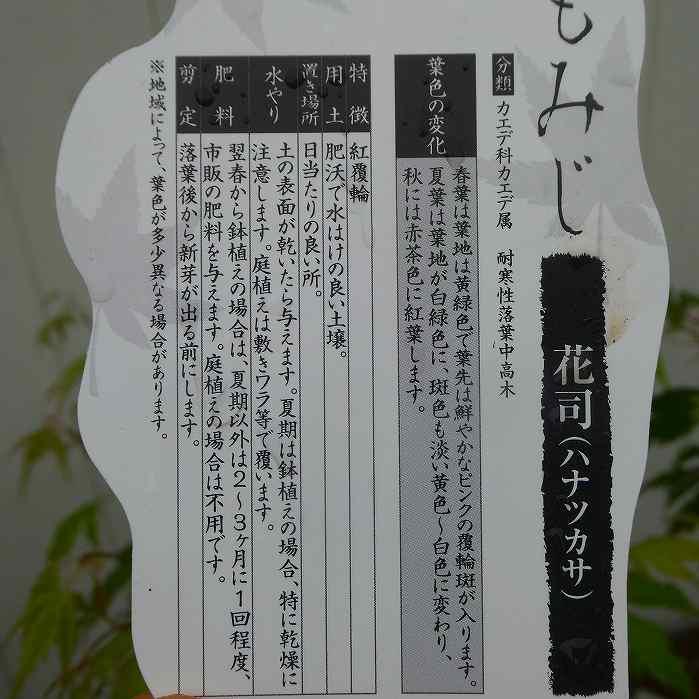 もみじ
花司(ハナツカサ)
分類 カエデ科カエデ属 耐寒性落葉中高木
葉色の変化
春葉は葉地は黄緑色で葉先は鮮やかなピンクの覆輪斑が入ります。
夏葉は葉地が白緑色に、斑色も淡い黄色〜白色に変わり、
秋には赤茶色に紅葉します。
特徴 紅覆輪
用土 肥沃で水はけの良い土壌。
置き場所 日当たりの良い所。
水やり 土の表面が乾いたら与えます。夏期は鉢植えの場合、特に乾燥に
注意します。庭植えは敷きワラ等で覆います。
肥料 翌春から鉢植えの場合は、夏期以外は2〜3ヶ月に1回程度、
市販の肥料を与えます。庭植えの場合は不用です。
剪定 落葉後から新芽が出る前にします。
※地域によって、葉色が多少異なる場合があります。